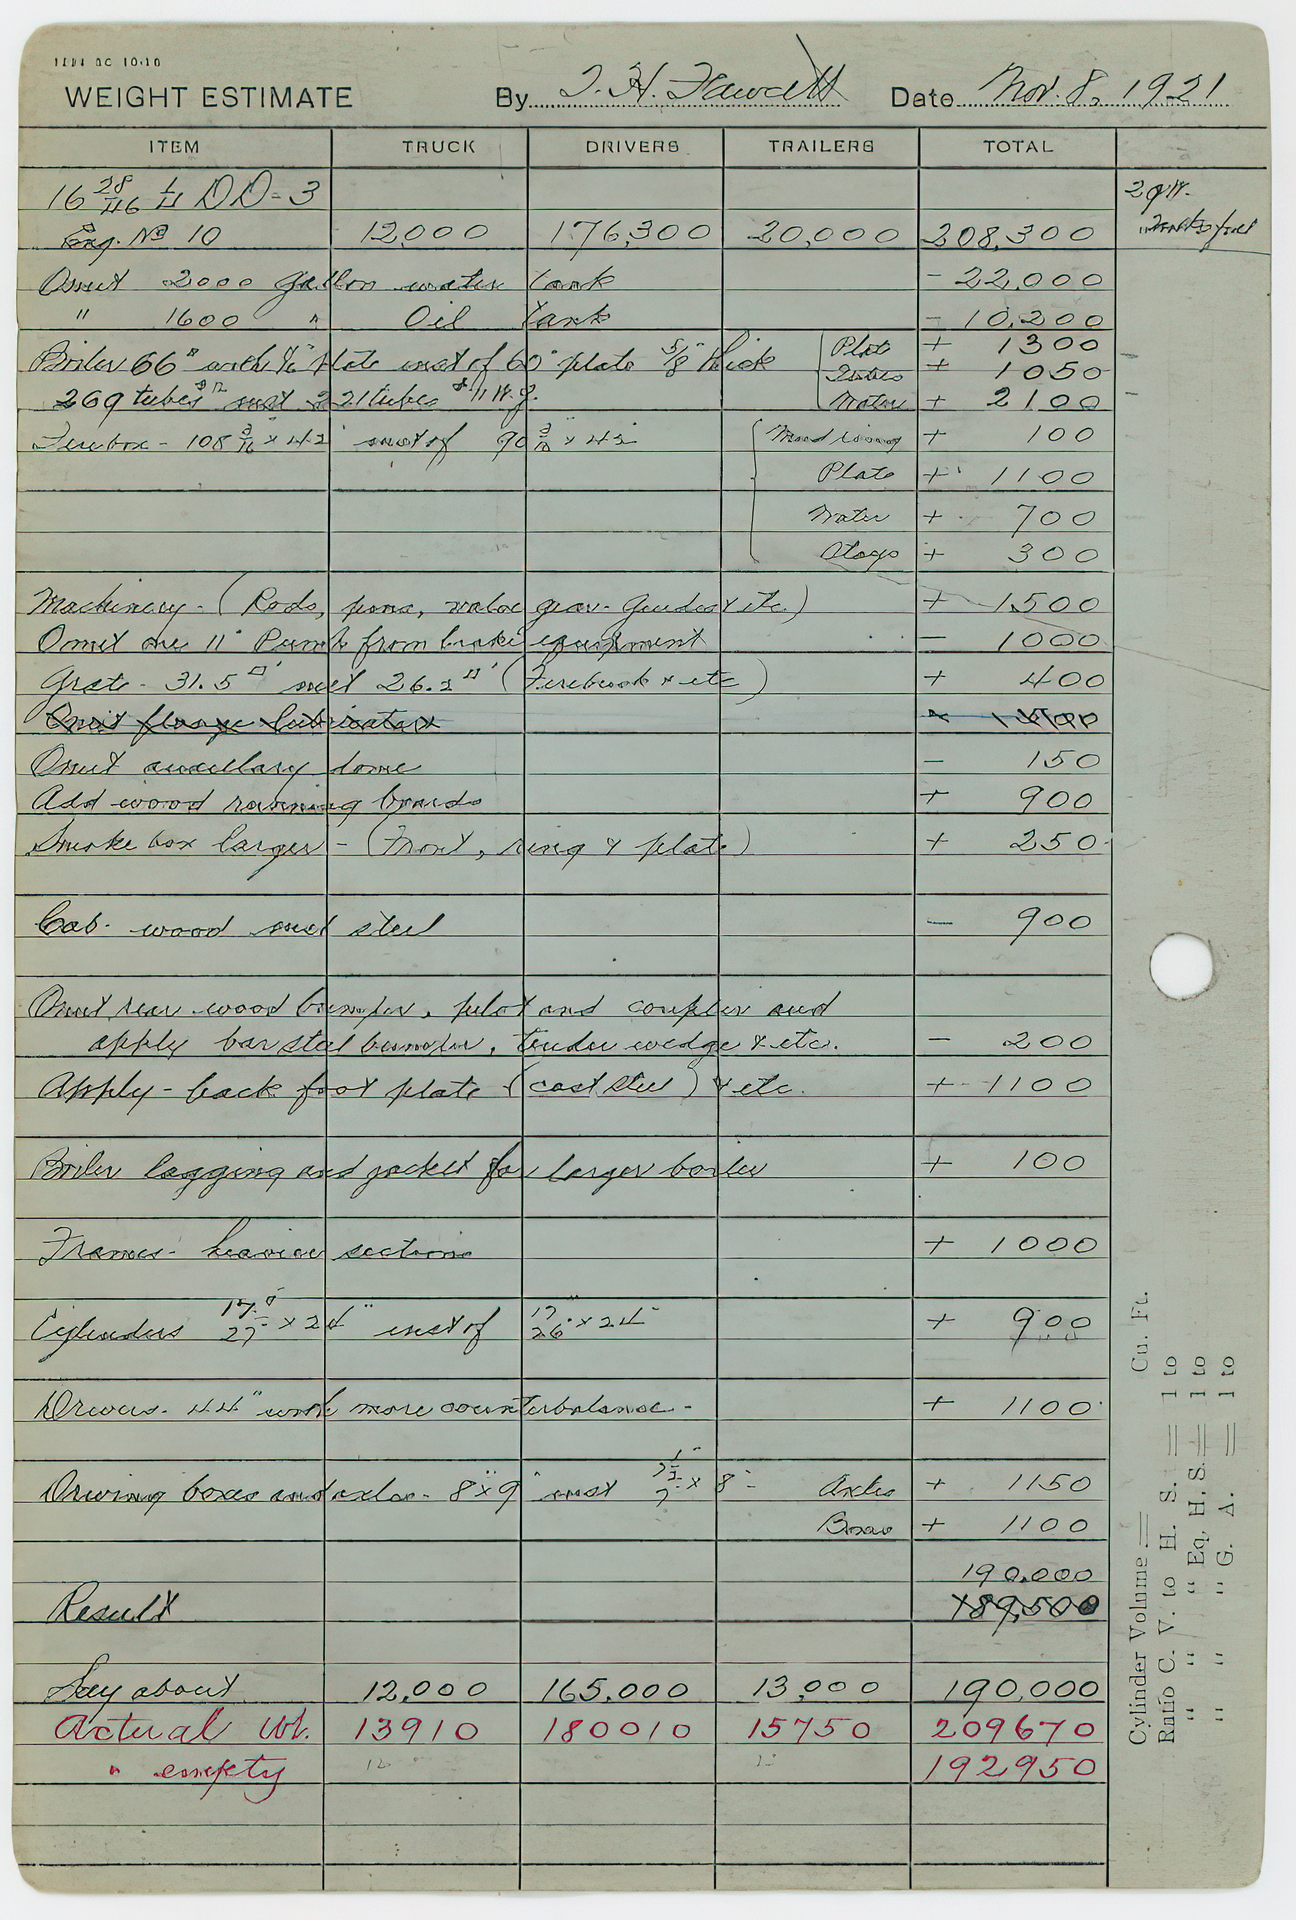 WEIGHT ESTIMATE By T. H. Fawcett Date Nov. 8, 1921
ITEM TRUCK DRIVERS TRAILERS TOTAL
16 28/46 1/4 DD-3
Eng. No 10 12,000 176,300 20,000 208,300
Omit 2000 gallon water tank - 22,000
" 1600 " Oil tank - 10,200
Boiler 66" with plate inst of 60" plate 5/8" thick Plate + 1300
Tubes + 1050
269 tubes inst 221 tubes 11 W.G. Water + 2100
Firebox - 108 3/16 x 43 inst of 90 3/16 x 43 Mud ring + 100
Plate + 1100
Water + 700
Stays + 300
Machinery - (Rods, pins, valve gear - Guides & etc.) + 1500
Omit one 11" Pump from brake equipment - 1000
Grate - 31.5 □' inst 26.2 □' (Firebrick & etc) + 400
Omit flange lubricator
Omit auxillary dome - 150
Add wood running boards + 900
Smoke box larger - (Front, ring & plate) + 250
Cab - wood inst steel - 900
Omit rear wood bumper, pilot and coupler and
apply bar steel bumper, tender wedge & etc. - 200
Apply - back foot plate (cast steel) & etc. + 1100
Boiler lagging and jacket for larger boiler + 100
Frames - heavier sections + 1000
Cylinders 17"/27" x 24" inst of 17"/26" x 24" + 900
Drivers - 44" with more counterbalance - + 1100
Driving boxes and axles - 8" x 9" inst 7 1/2"/7" x 8" Axles + 1150
Boxes + 1100
190,000
Result 189,500
Say about 12,000 165,000 13,000 190,000
Actual Wt. 13910 180010 15750 209670
" empty 192950
Cylinder Volume = Cu. Ft.
Ratio C. V. to H. S. = 1 to
" " Eq. H. S. = 1 to
" " G. A. = 1 to